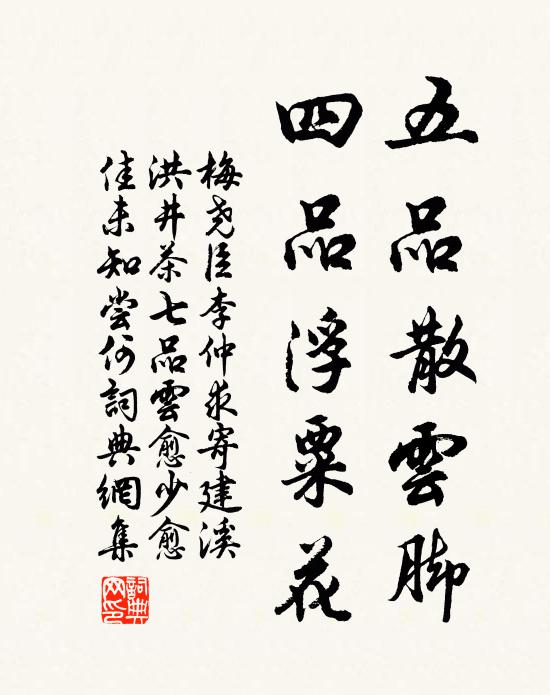 五品散雲脚
四品浮粟花
梅尧臣李仲求寄建溪
洪井茶七品雲愈少愈
佳未知嘗何詞典網集
詞典網印